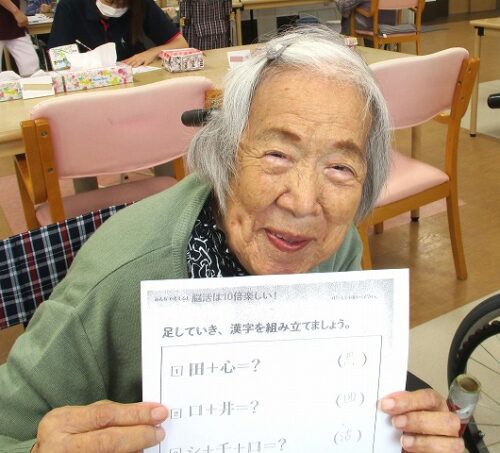 脳活は10倍楽しい！
足していき、漢字を組み立てましょう。
1 田＋心＝？ （思）
2 口＋井＝？ （囲）
3 シ＋千＋口＝？ （活）